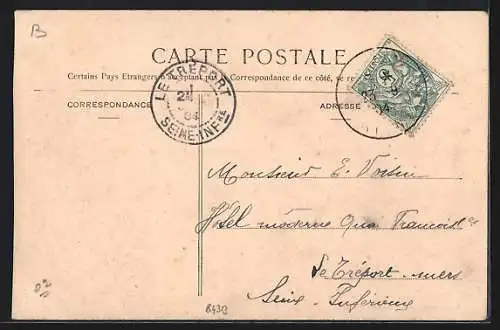 B
CARTE POSTALE
Certains Pays Etrangers n'acceptant pas de Correspondance de ce côté, se re
CORRESPONDANCE
ADRESSE
LE TRÉPORT
04
SEINE-INFRE
Monsieur E. Voisin
Hôtel moderne Quai François 1er
Le Tréport-mers
Seine Inférieure
8433